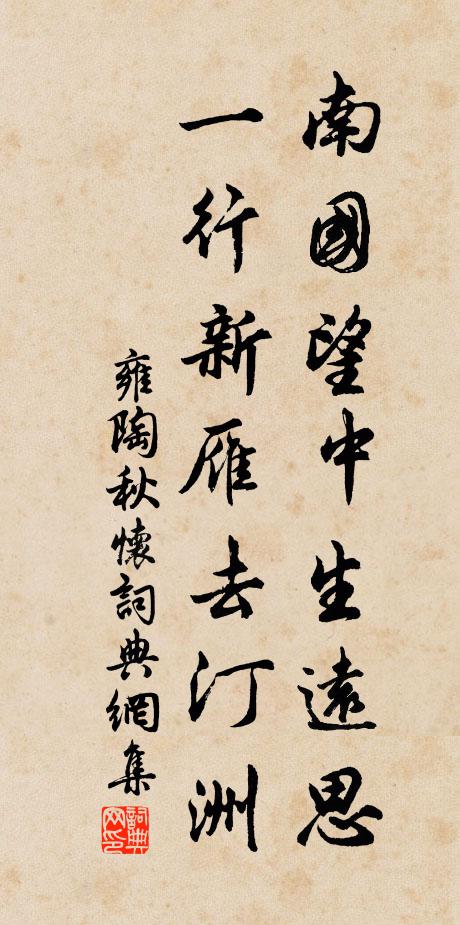 南國望中生遠思
一行新雁去汀洲
雍陶秋懷詞典網集
詞典网印